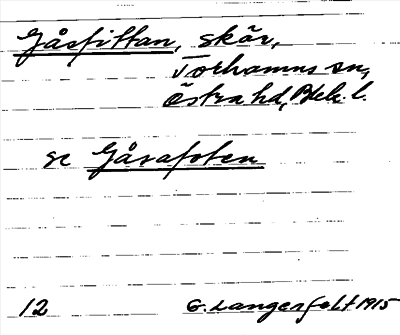 Gåsfittan, skär,
Torhamns sn,
Östra hd, Blek. l.
se Gåsafoten
12 G. Langenfelt 1915